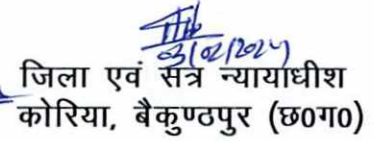 03/02/2024
जिला एवं सत्र न्यायाधीश
कोरिया, बैकुण्ठपुर (छ0ग0)